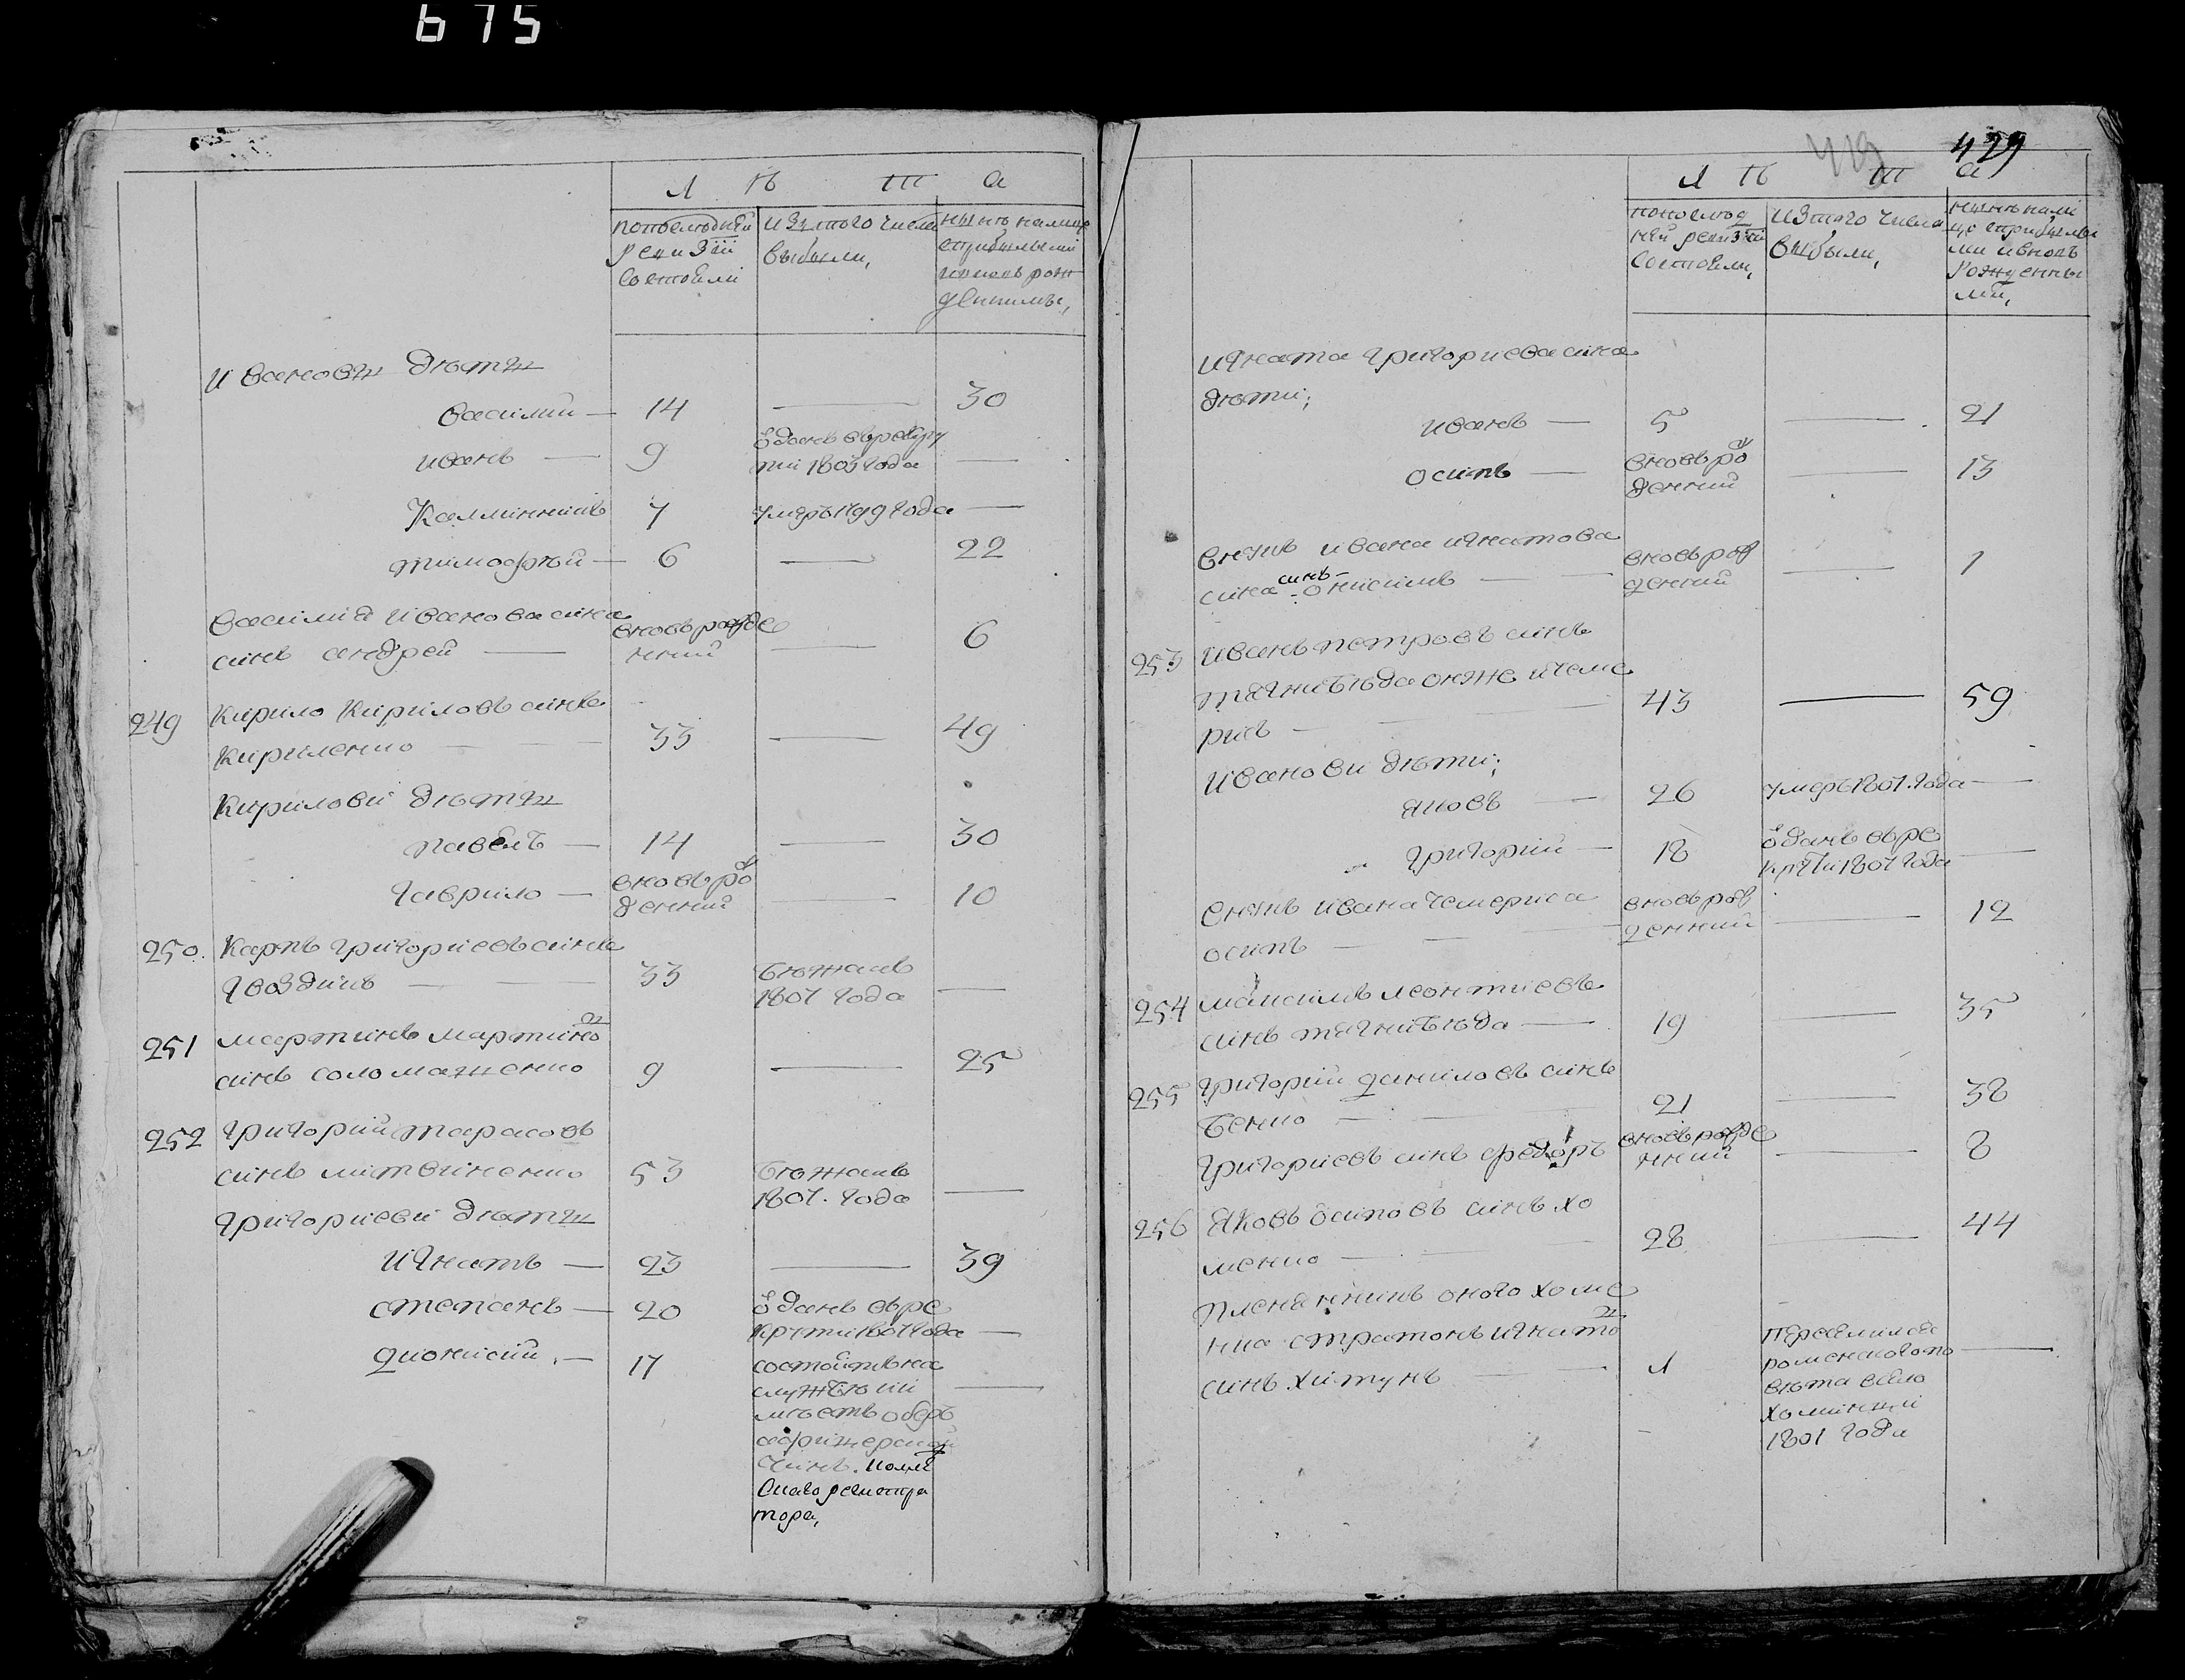 675
Л Ѣ Т А
попоследней изтого числа нынѣ налице
ревизіи выбыли, сприбылыми
состояли ивновь рож
денными,
Ивановы дѣти
василий — 14 — 30
иванъ — 9 ѿданъ врекру
ти 1803 года —
Каллинникъ 7 умеръ 1799 года —
тимофѣй — 6 — 22
василія иванова сина
синъ андрей — вновь рожде
нний — 6
249 Кирило Кириловъ синъ
Кириленко — 33 — 49
Кирилови дѣти
павелъ — 14 — 30
гаврило — вновь рож
денний — 10
250. Карпъ григориевъ синъ
гвоздикъ — 33 бѣжалъ
1807 года —
251 мартинъ мартинов
синъ соломаженко 9 — 25
252 григорий тарасовъ
синъ литвиненко 53 бѣжалъ
1807. года —
григориеви дѣти
Игнатъ — 23 — 39
степанъ — 20 ѿданъ вре
крути 1807 года —
дионисий. — 17 состоитъ на
службѣ и
имѣетъ оберъ
офицерской
чинъ.
регистра
тора,
419 429
Л Ѣ Т А
попослед изтого числа нынѣ нали
ней ревизіи выбыли, це сприбылы
состояли, ми ивновь
рожденны
ми,
игната григориева сина
дѣти;
иванъ — 5 — 21
осипъ — вновь рож
денний — 13
внукъ ивана игнатова
сина синъ онисимъ — вновь рож
денний — 1
253 иванъ петровъ синъ
тягнибѣда онже и чеме
рисъ — 43 — 59
иванови дѣти;
яковъ — 26 умеръ 1807. года —
григорий — 18 ѿданъ вре
крути 1807 года —
внукъ ивана чемериса вновь рож
осипъ — денний — 12
254 максимъ леонтиевъ
синъ тягнибѣда — 19 — 35
255 григорий даниловъ синъ
бенко — 21 — 38
григориевъ синъ федоръ вновь рожде
нний — 8
256 яковъ осиповъ синъ хо
менко — 28 — 44
племянникъ оного хоме
нка стратонъ игнатов
синъ хитунъ — 1 переселился
роменского по
вѣта всело
хоминци
1801 года —